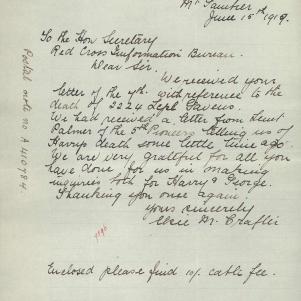 Mt Gambier
June 15th 1919.
To the Hon Secretary
Red Cross Information Bureau.
Dear Sir.
We received your
letter of the 4th with reference to the
death of 3224
We had received a letter from Lieut
Palmer of the 5th Pioneers telling us of
Harrys death some little time ago.
We are very grateful for all you
have done for us in making
inquiries both for Harry & George.
Thanking you once again.
yours sincerely
Elsie M.
Enclosed please find 10/. cable fee.
Postal note no A 416784.